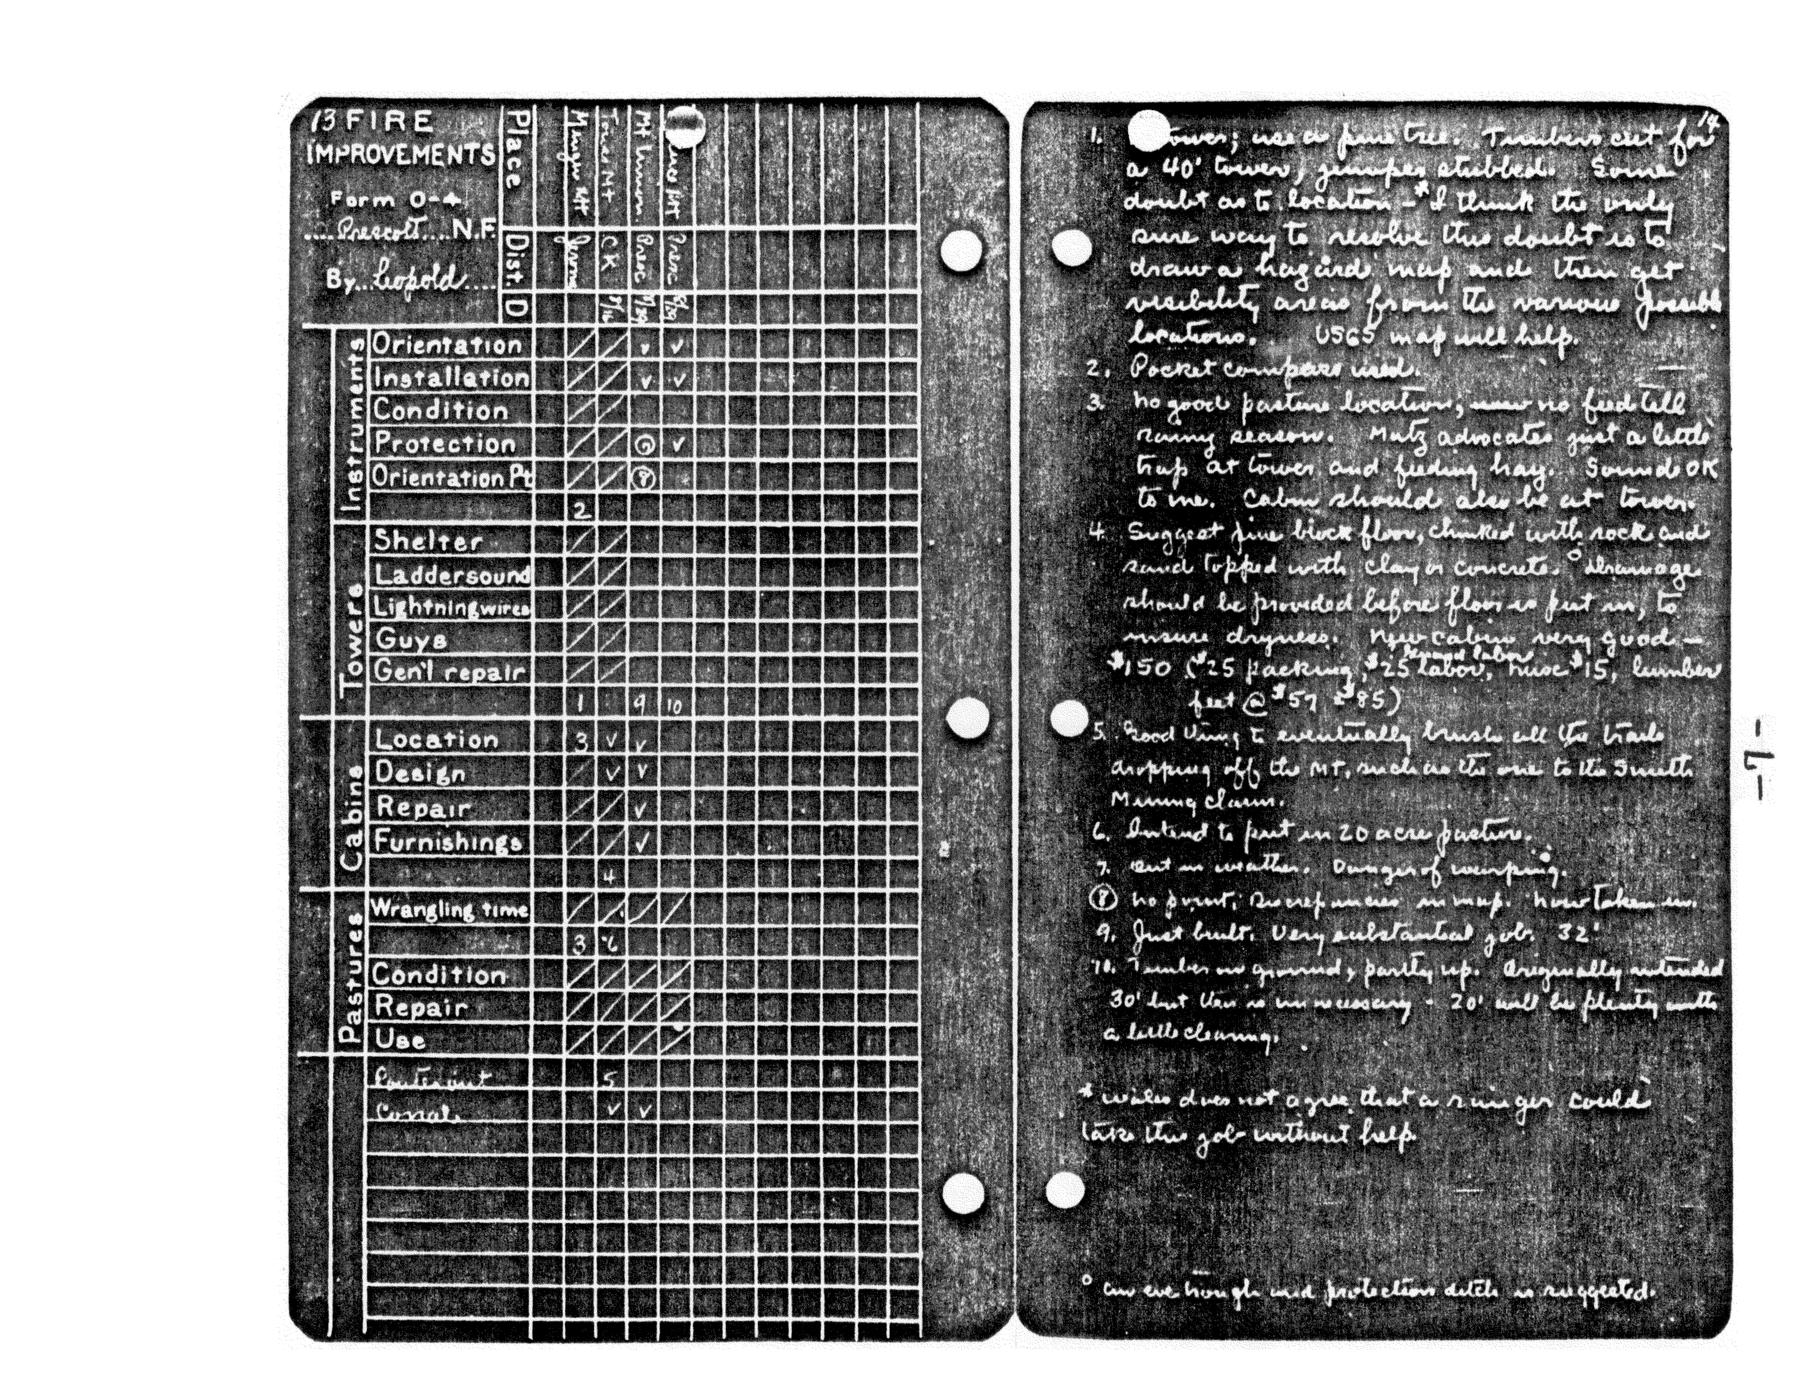 13 FIRE
IMPROVEMENTS
Form O-4
Prescott N.F.
By Leopold
Place
Dist.
D
Mt Union
CK
Instruments
Orientation ✓ ✓
Installation ✓ ✓
Condition
Protection ⑦ ✓
Orientation Pt ⑧
2
Towers
Shelter
Laddersound
Lightningwires
Guys
Gen'l repair
1 9 10
Cabins
Location 3 ✓ ✓
Design ✓ ✓
Repair ✓
Furnishings ✓
4
Pastures
Wrangling time
3 6
Condition
Repair
Use
5
Corral ✓ ✓
14
1. tower; use a pine tree. Timbers cut for
a 40' tower, juniper stubbed. Some
doubt as to location - * I think the only
sure way to resolve this doubt is to
draw a hazard map and then get
visibility areas from the various possible
locations. USGS map will help.
2. Pocket compass used.
3. No good pasture location; no feed till
rainy season. Mutz advocates just a little
trap at tower and feeding hay. Sounds OK
to me. Cabin should also be at tower.
4. Suggest pine block floor, chinked with rock and
sand topped with clay or concrete. ° Drainage
should be provided before floor is put in, to
insure dryness. New cabin very good -
$150 ($25 packing, $25 labor, misc $15, lumber
feet @ $57 & $85)
5. Good thing to eventually brush all the trails
dropping off the Mt, such as the one to the Smith
Mining claim.
6. Intend to put in 20 acre pasture.
7. Out in weather. Danger of warping.
⑧ No point; Discrepancies in map. Now taken in.
9. Just built. Very substantial job. 32'
10. Timber on ground, partly up. Originally intended
30' but this is unnecessary - 20' will be plenty with
a little clearing.
* Wales does not agree that a ranger could
take this job without help.
° an eve trough and protection ditch is suggested.
-7-